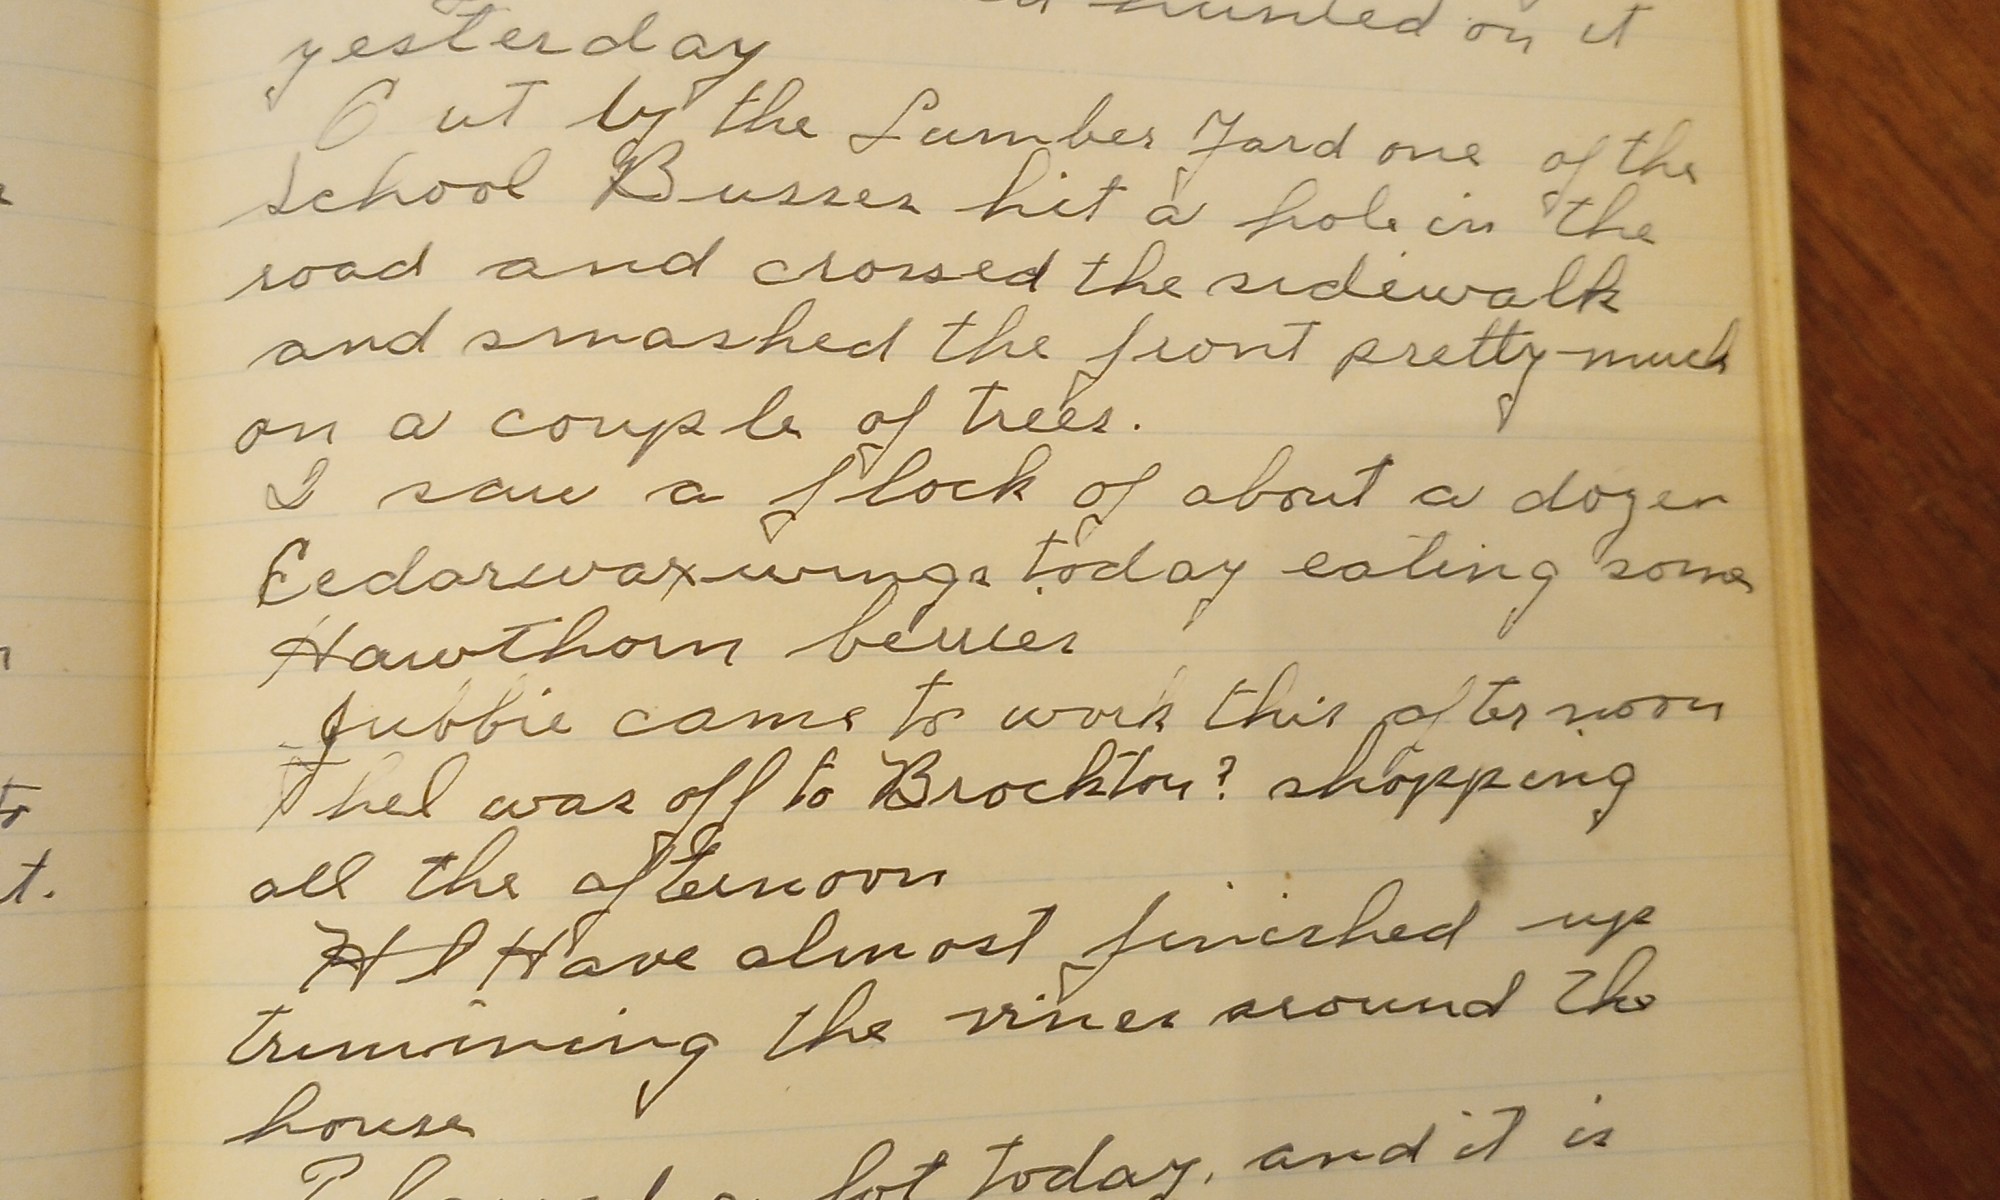 hunted on it
yesterday
Out by the Lumber Yard one of the
School Busses hit a hole in the
road and crossed the sidewalk
and smashed the front pretty much
on a couple of trees.
I saw a flock of about a dozen
Cedarwaxwings today eating some
Hawthorn berries
Jubbie came to work this afternoon
Thel was off to Brockton? shopping
all the afternoon
I Have almost finished up
trimming the vines around the
house
lot today, and it is
to
t.